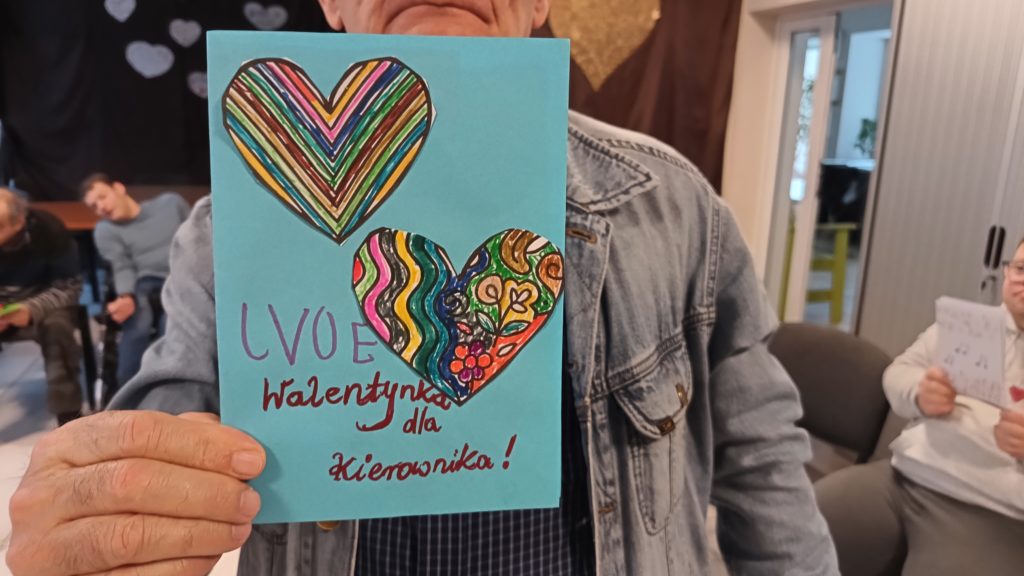 LVOE
Walentynka
dla
Kierownika!